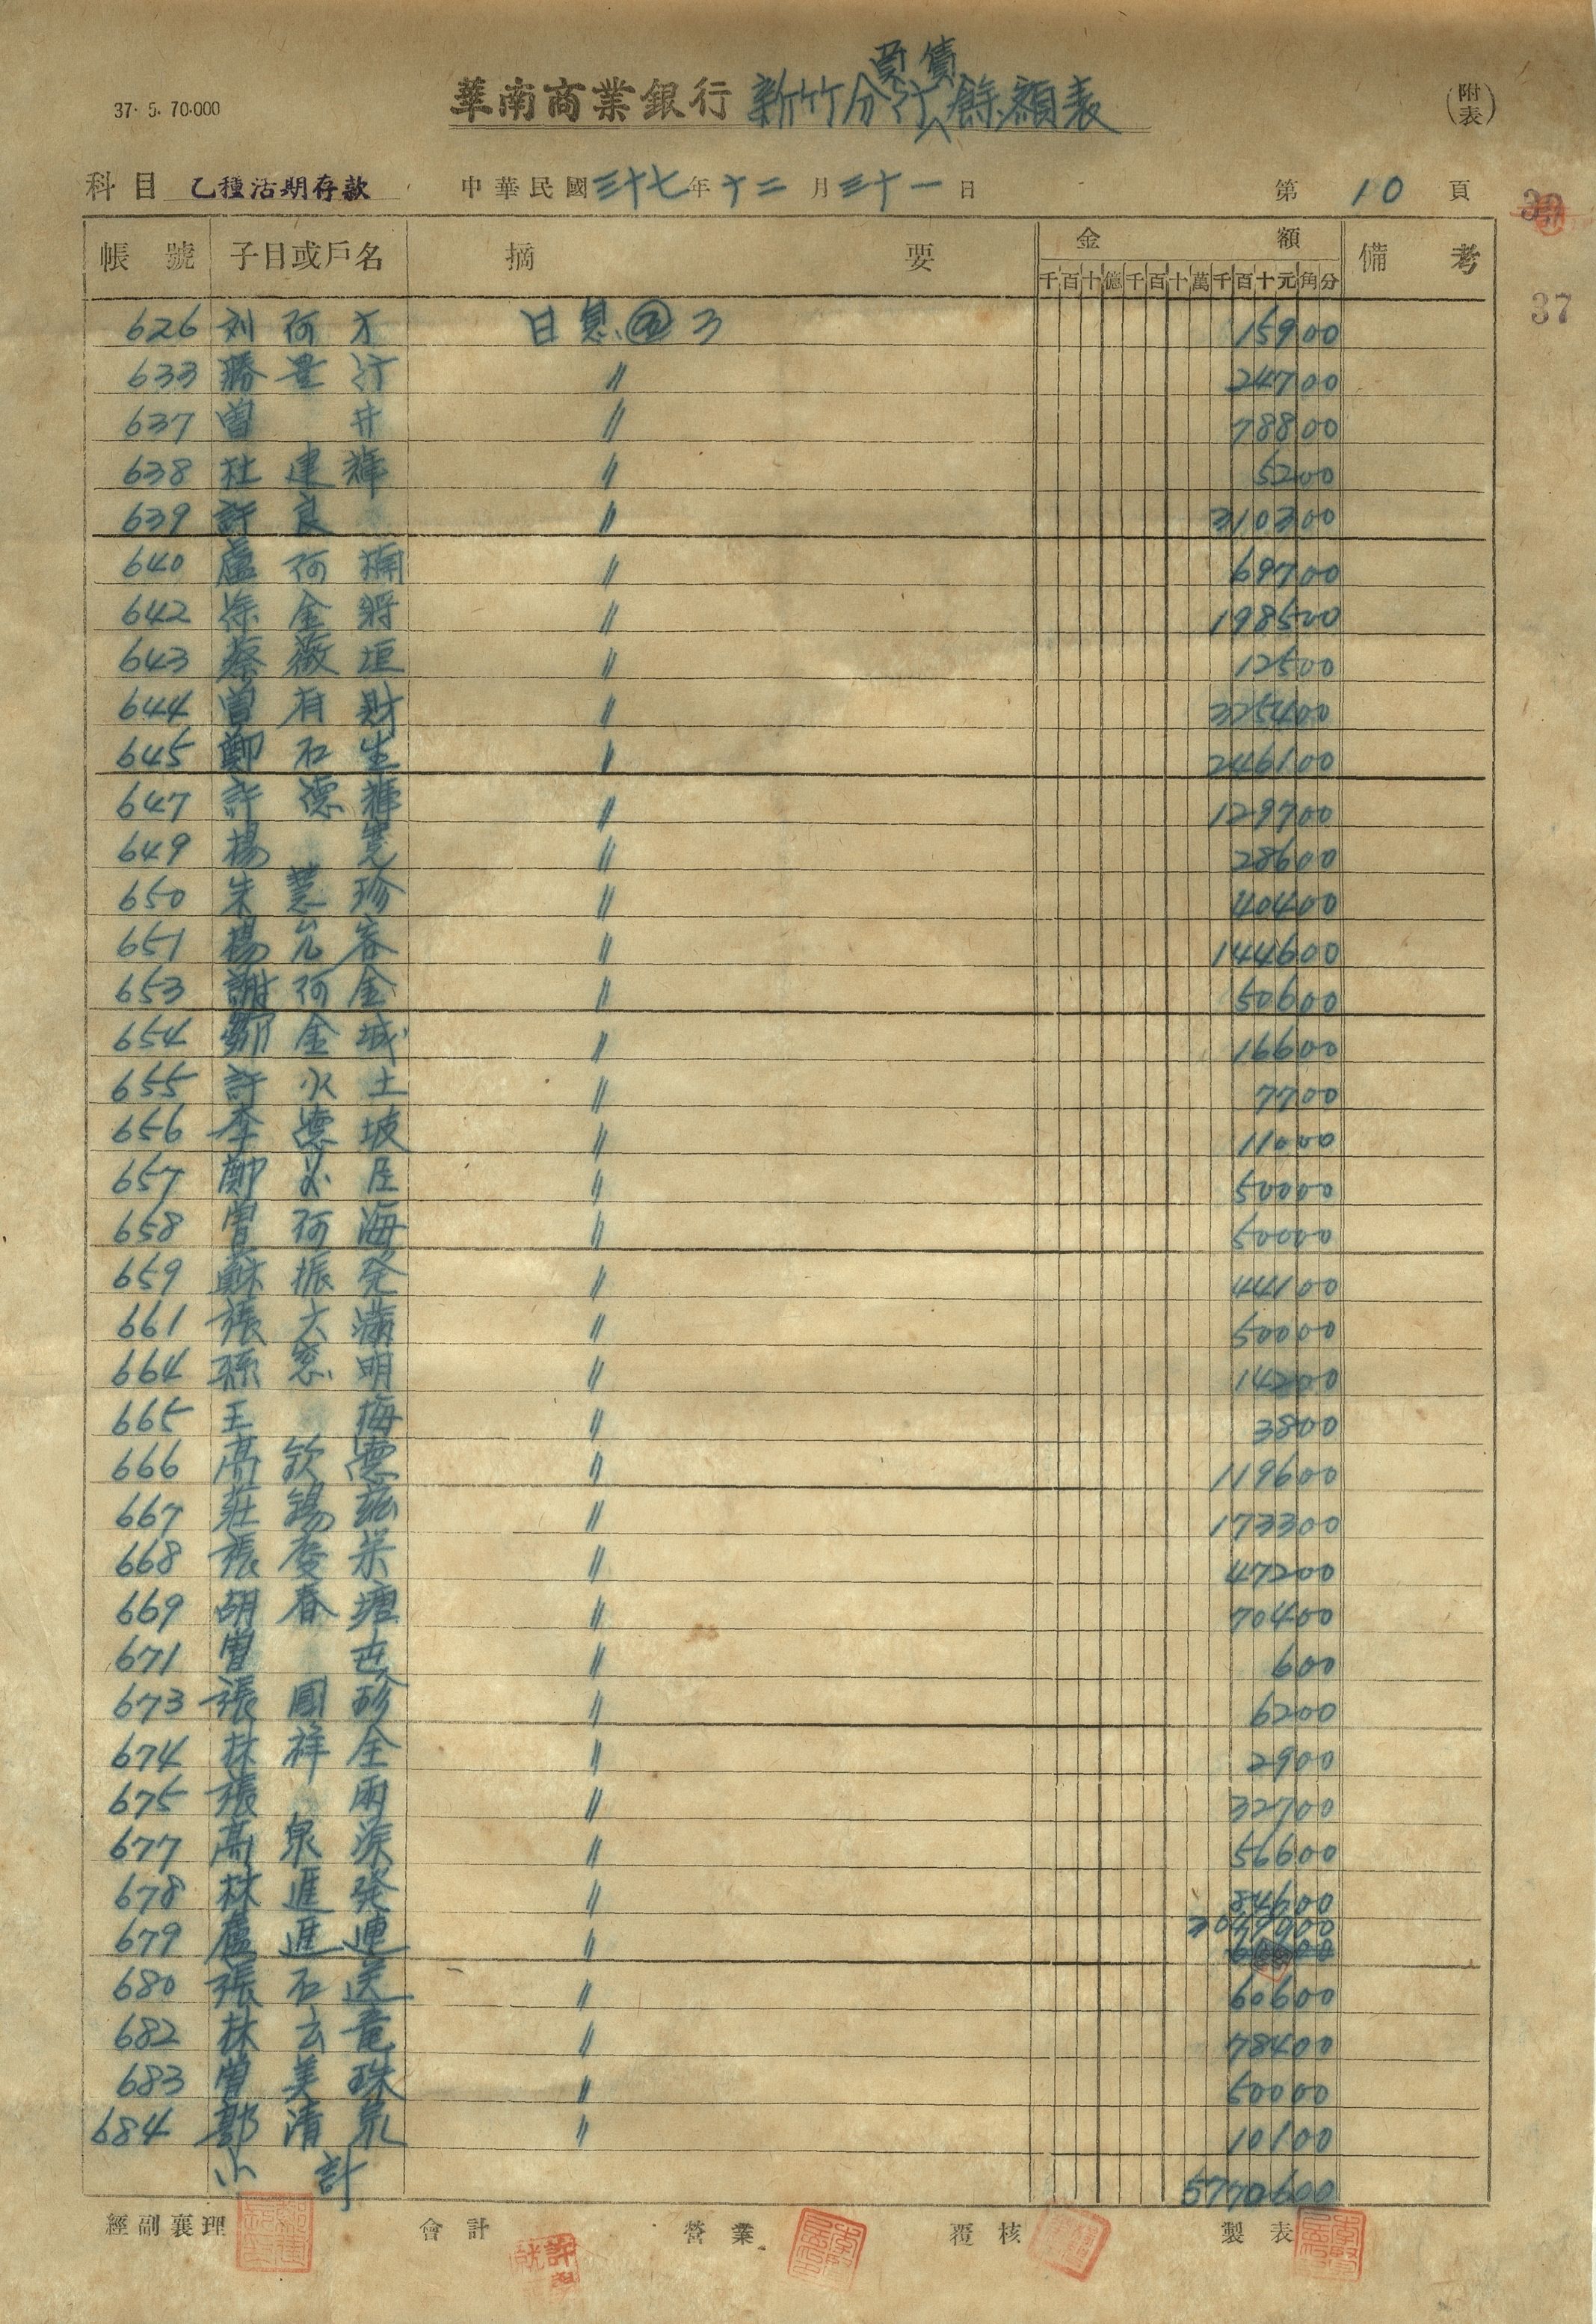 37. 5. 70.000
華南商業銀行 新竹分行買債餘額表
(附表)
科目 乙種活期存款 中華民國三十七年十二月三十一日 第10頁
37
帳號 子目或戶名 摘要 金額 備考
千百十億千百十萬千百十元角分
626 刘阿才 日息@3 15900
633 勝 〃 24700
637 曾井 〃 78800
638 杜建輝 〃 5200
639 許良 〃 310300
640 盧阿楠 〃 69700
642 徐金將 〃 198500
643 蔡薇垣 〃 12500
644 曾有財 〃 325400
645 鄭石生 〃 246100
647 許德輝 〃 129700
649 楊寛 〃 28600
650 朱慧珍 〃 40400
651 楊允容 〃 144600
653 謝阿金 〃 50600
654 鄭金城 〃 16600
655 許水土 〃 7700
656 李德坡 〃 11000
657 鄭必臣 〃 50000
658 曾阿海 〃 50000
659 蘇振発 〃 44100
661 張大滿 〃 50000
664 孫窓明 〃 14200
665 王梅 〃 3800
666 高欽德 〃 119600
667 莊錫茲 〃 173300
668 張 〃 47200
669 胡春塘 〃 70400
671 曾 〃 600
673 張圓珍 〃 6200
674 林祥全 〃 2900
675 張雨 〃 32700
677 高泉源 〃 56600
678 林進發 〃 84600
679 盧進連 〃 3047900
680 張石送 〃 60600
682 林云竜 〃 78400
683 曾美珠 〃 50000
684 郭清泉 〃 10100
小計 5770600
經副襄理 會計 營業 覆核 製表